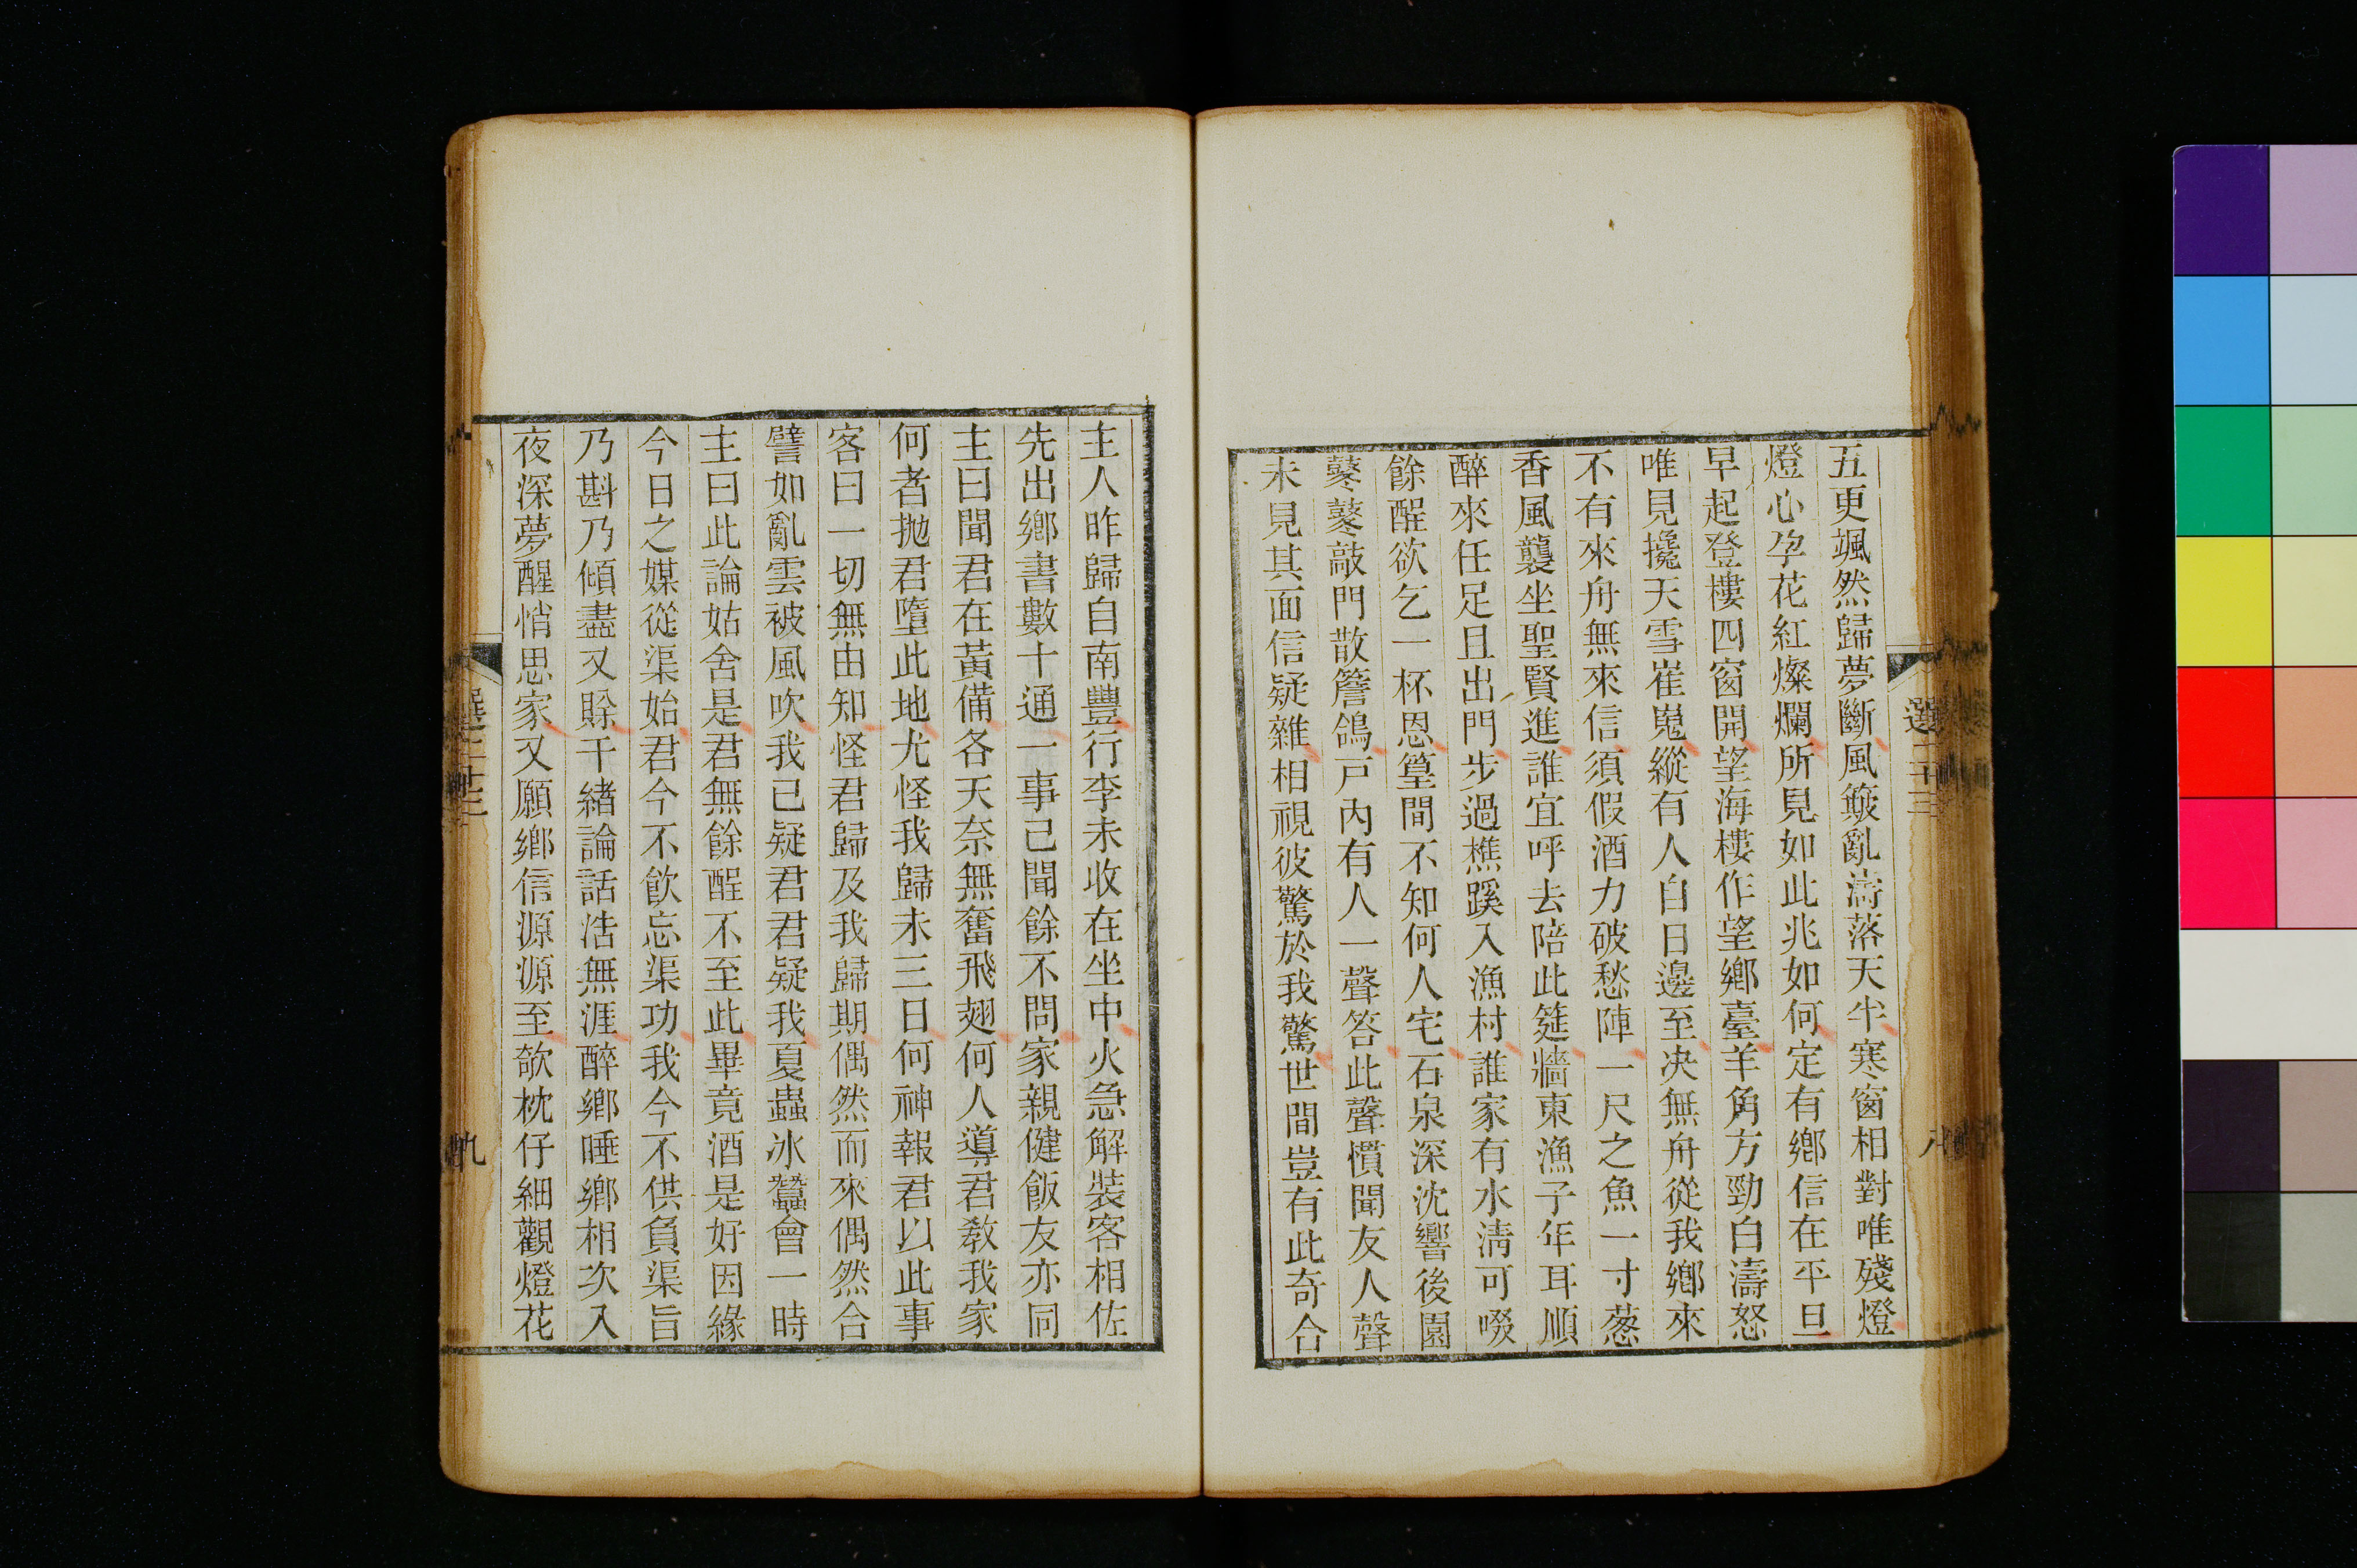 選二十三
八
五更颯然歸夢斷風簸亂濤落天半寒窗相對唯殘燈
燈心孕花紅燦爛所見如此兆如何定有鄉信在平旦
早起登樓四窗開望海樓作望鄉臺羊角方勁白濤怒
唯見攙天雪崔嵬縱有人自日邊至决無舟從我鄉來
不有來舟無來信須假酒力破愁陣一尺之魚一寸葱
香風襲坐聖賢進誰宜呼去陪此筵牆東漁子年耳順
醉來任足且出門步過樵蹊入漁村誰家有水清可啜
餘酲欲乞一杯恩篁間不知何人宅石泉深沈響後園
鼕鼕敲門散簷鴿戸內有人一聲答此聲慣聞友人聲
未見其面信疑雜相視彼驚於我驚世間豈有此奇合
主人昨歸自南豐行李未收在坐中火急解裝客相佐
先出鄉書數十通一事已聞餘不問家親健飯友亦同
主曰聞君在黃備各天奈無奮飛翅何人導君教我家
何者抛君墮此地尤怪我歸未三日何神報君以此事
客曰一切無由知怪君歸及我歸期偶然而來偶然合
譬如亂雲被風吹我已疑君君疑我夏蟲冰蠶會一時
主曰此論姑舍是君無餘酲不至此畢竟酒是好因緣
今日之媒從渠始君今不飮忘渠功我今不供負渠旨
乃斟乃傾盡又賖千緒論話浩無涯醉鄉睡鄉相次入
夜深夢醒悄思家又願鄉信源源至欹枕仔細觀燈花
選二十三
九